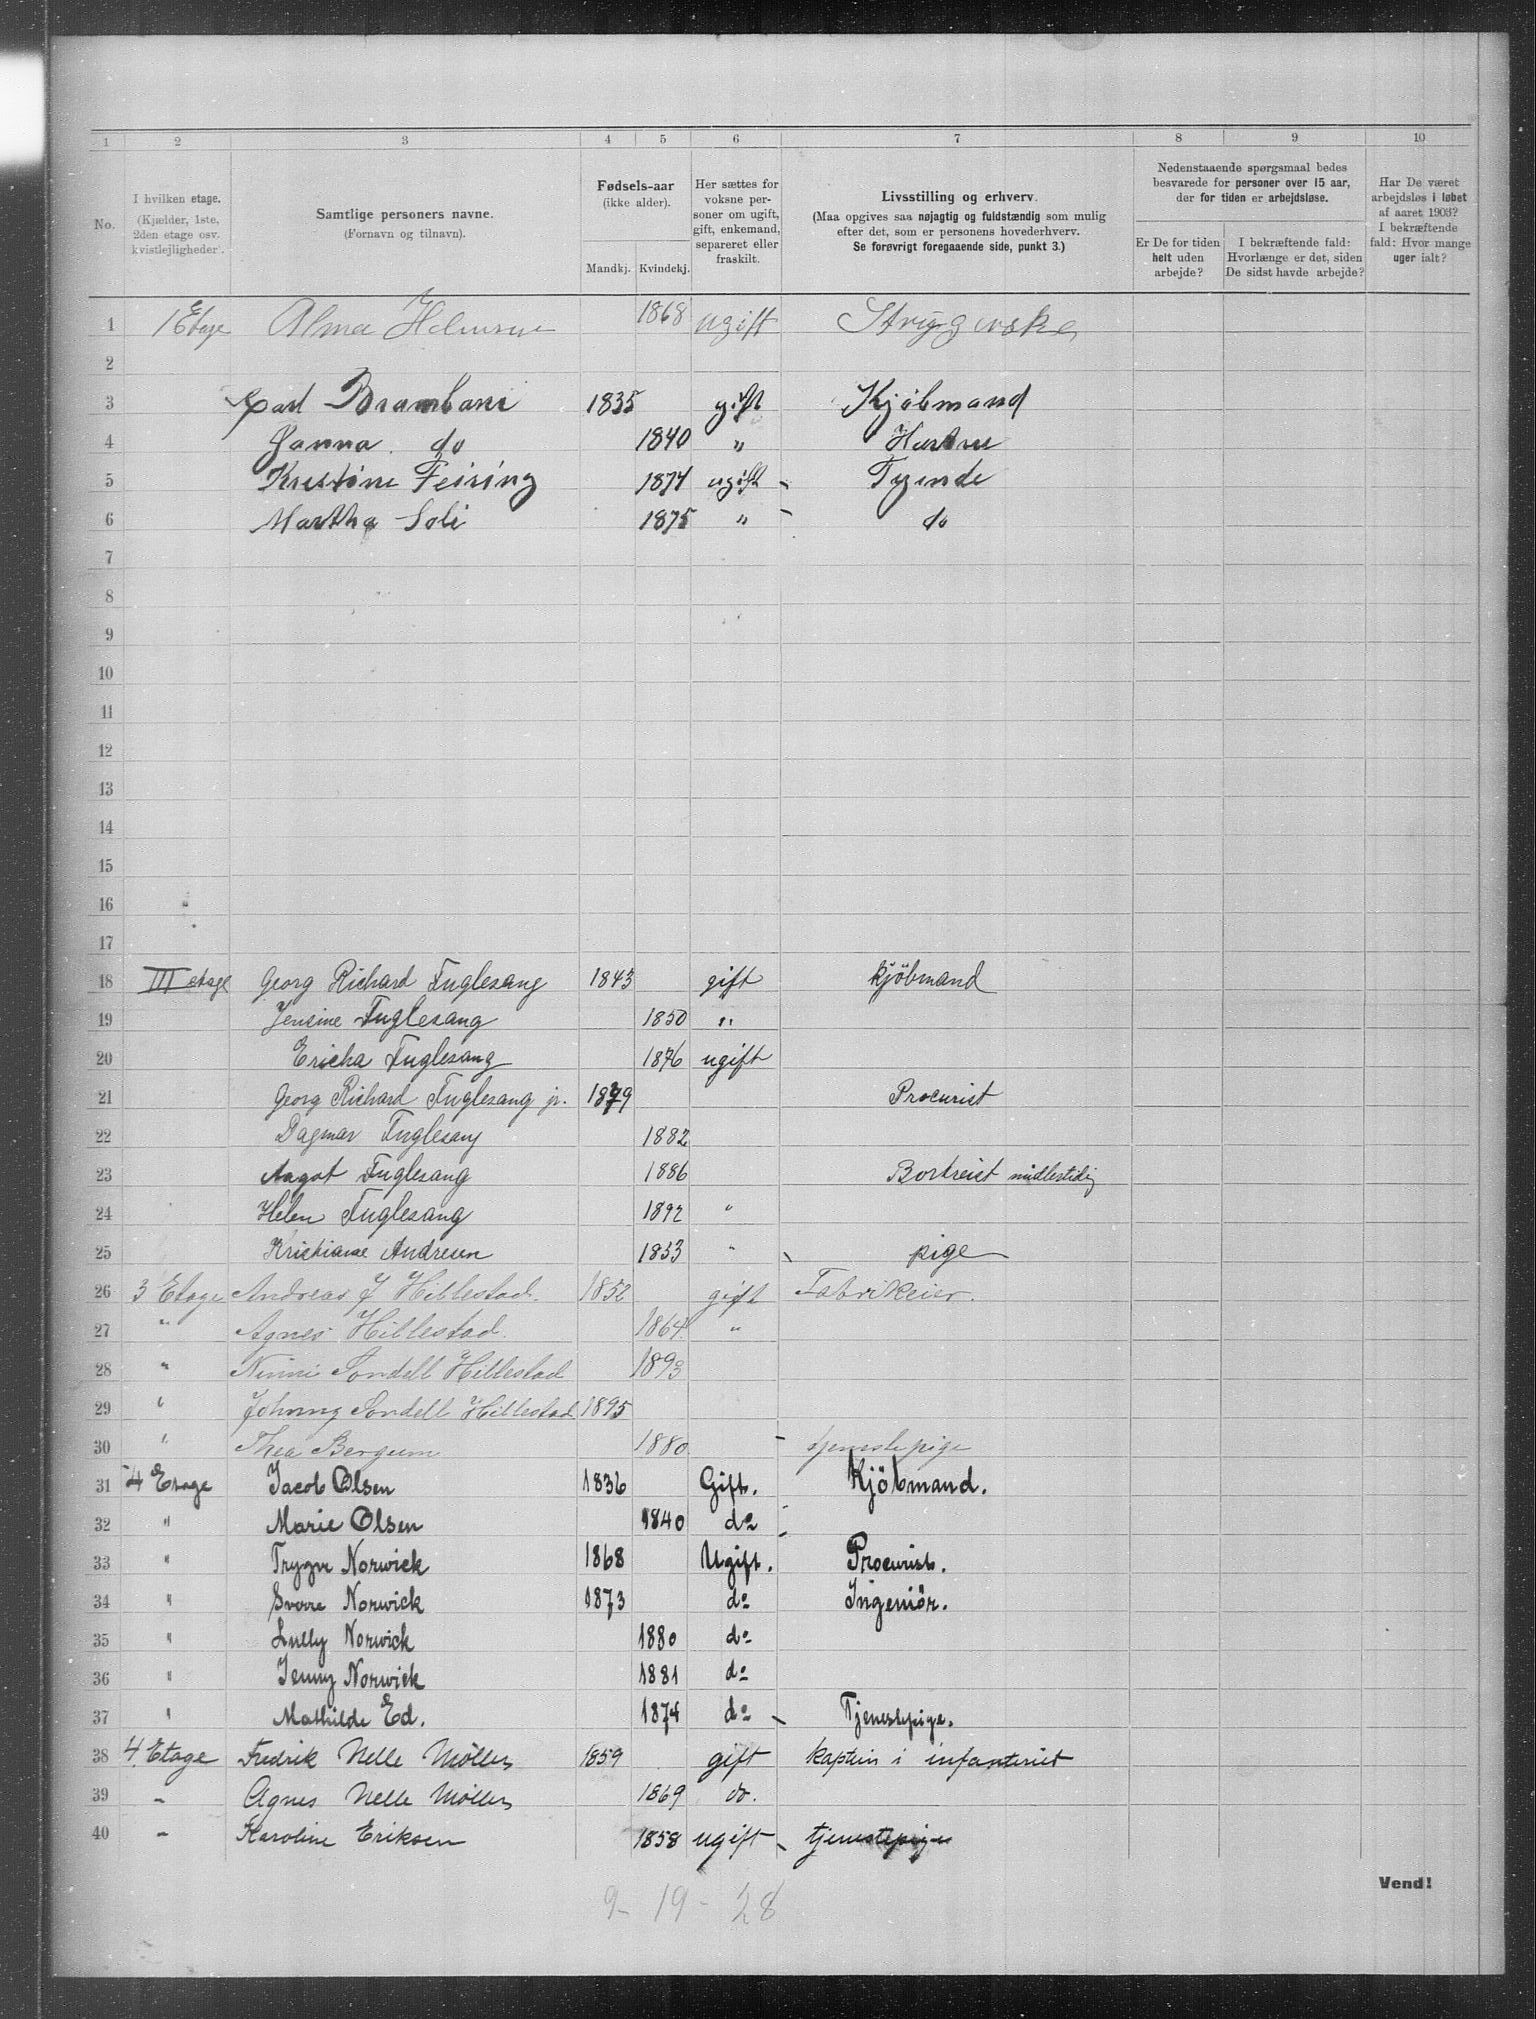 1 2 3 4 5 6 7 8 9 10
No.
I hvilken etage.
(Kjælder, 1ste,
2den etage osv.
kvistlejligheder).
Samtlige personers navne.
(Fornavn og tilnavn).
Fødsels-aar
(ikke alder).
Mandkj. Kvindekj.
Her sættes for
voksne per-
soner om ugift,
gift, enkemand,
separeret eller
fraskilt.
Livsstilling og erhverv.
(Maa opgives saa nøjagtig og fuldstændig som mulig
efter det, som er personens hovederhverv.
Se forøvrigt foregaaende side, punkt 3.)
Nedenstaaende spørgsmaal bedes
besvarede for personer over 15 aar,
der for tiden er arbejdsløse.
Er De for tiden
helt uden
arbejde?
I bekræftende fald:
Hvorlænge er det, siden
De sidst havde arbejde?
Har De været
arbejdsløs i løbet
af aaret 1903?
I bekræftende
fald: Hvor mange
uger ialt?
1 1 Etage Alma 1868 ugift
2
3 Carl 1835 gift Kjöbmand
4 Hanna do 1840 " Hustru
5 Kristine Feiring 1874 ugift - Tyende
6 Martha Soli 1875 " - do
7
8
9
10
11
12
13
14
15
16
17
18 III etage Georg Richard Fuglesang 1843 gift kjöbmand
19 Jensine Fuglesang 1850 "
20 Ericka Fuglesang 1876 ugift
21 Georg Richard Fuglesang jr. 1879 Procurist
22 Dagmar Fuglesang 1882
23 Aagot Fuglesang 1886 Bortreist midlertidig
24 Helen Fuglesang 1892 "
25 Kristiane Andresen 1853 " - pige
26 3 Etage Andreas J Hillestad. 1852 gift Fabrikeier.
27 " Agnes Hillestad. 1864 "
28 " Ninni Sondell Hillestad 1893
29 " Johnny Sondell Hillestad 1895
30 " Thea Bergum 1880 - tjenstepige
31 4 Etage Jacob Olsen 1836 Gift. Kjöbmand.
32 " Marie Olsen 1840 do
33 " Trygve Norwick 1868 Ugift. Procurist.
34 " Sverre Norwick 1873 do Ingeniör.
35 " Lully Norwick 1880 do
36 " Jenny Norwick 1881 do
37 " Mathilde Ed. 1874 do - Tjenestepige.
38 4. Etage Fredrik Nelle Møller 1859 gift kaptein i infanteriet
39 - Agnes Nelle Møller 1869 do.
40 - Karoline Eriksen 1858 ugift - tjenestepige
Vend!
9 - 19 - 28